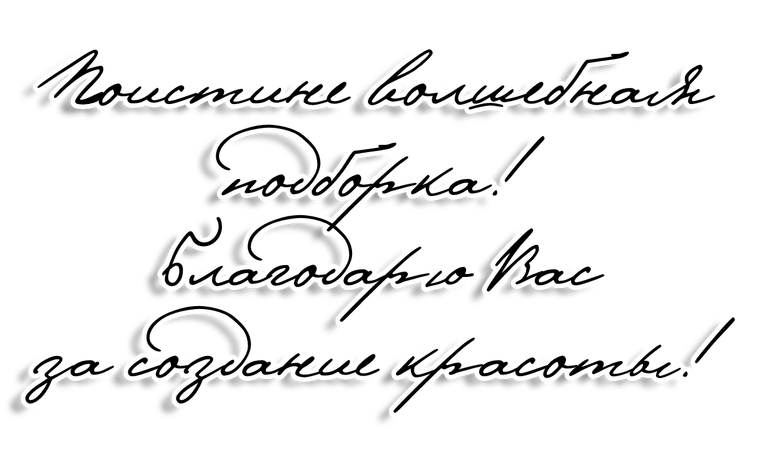 Поистине волшебная
подборка!
Благодарю Вас
за создание красоты!